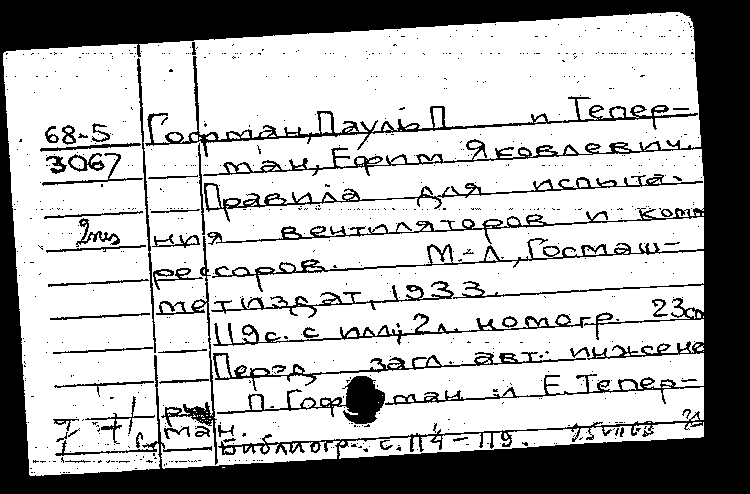 68-5
3067
2 экз
Гофман, Пауль П и Тепер-
ман, Ефим Яковлевич.
Правила для испыта-
ния вентиляторов и комп
рессоров. М.-Л., Госмаш-
метиздат, 1933.
119 с. с илл; 2 л. номогр. 23 см
Перед загл. авт: инжене
ры П. Гофман и Е. Тепер-
ман.
Библиогр. с. 114-119.